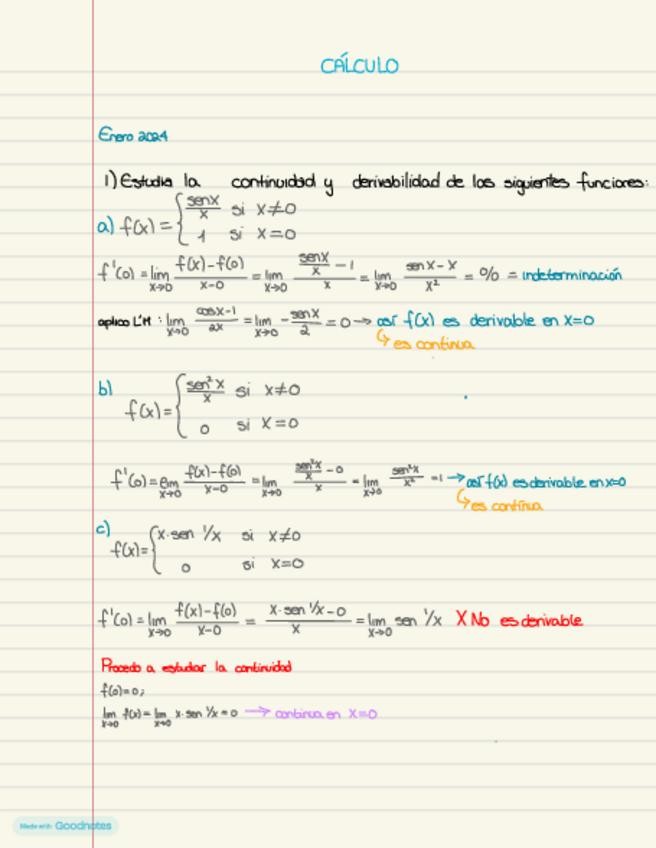 CÁLCULO
Enero 2024
1) Estudia la continuidad y derivabilidad de las siguientes funciones:
a) f(x) = { senx/x si x≠0
1 si x=0
f'(0) = lim x→0 f(x)-f(0)/x-0 = lim x→0 (senx/x - 1)/x = lim x→0 senx-x/x² = 0/0 = indeterminación
aplico L'H : lim x→0 cosx-1/2x = lim x→0 -senx/2 = 0 → así f(x) es derivable en x=0
↳ es continua
b) f(x) = { sen²x/x si x≠0
0 si x=0
f'(0) = lim x→0 f(x)-f(0)/x-0 = lim x→0 (sen²x/x - 0)/x = lim x→0 sen²x/x² = 1 → así f(x) es derivable en x=0
↳ es contínua
c) f(x) = { x·sen 1/x si x≠0
0 si x=0
f'(0) = lim x→0 f(x)-f(0)/x-0 = x·sen 1/x-0/x = lim x→0 sen 1/x X No es derivable
Procedo a estudiar la continuidad
f(0)=0;
lim x→0 f(x) = lim x→0 x·sen 1/x = 0 → continua en x=0
Made with Goodnotes